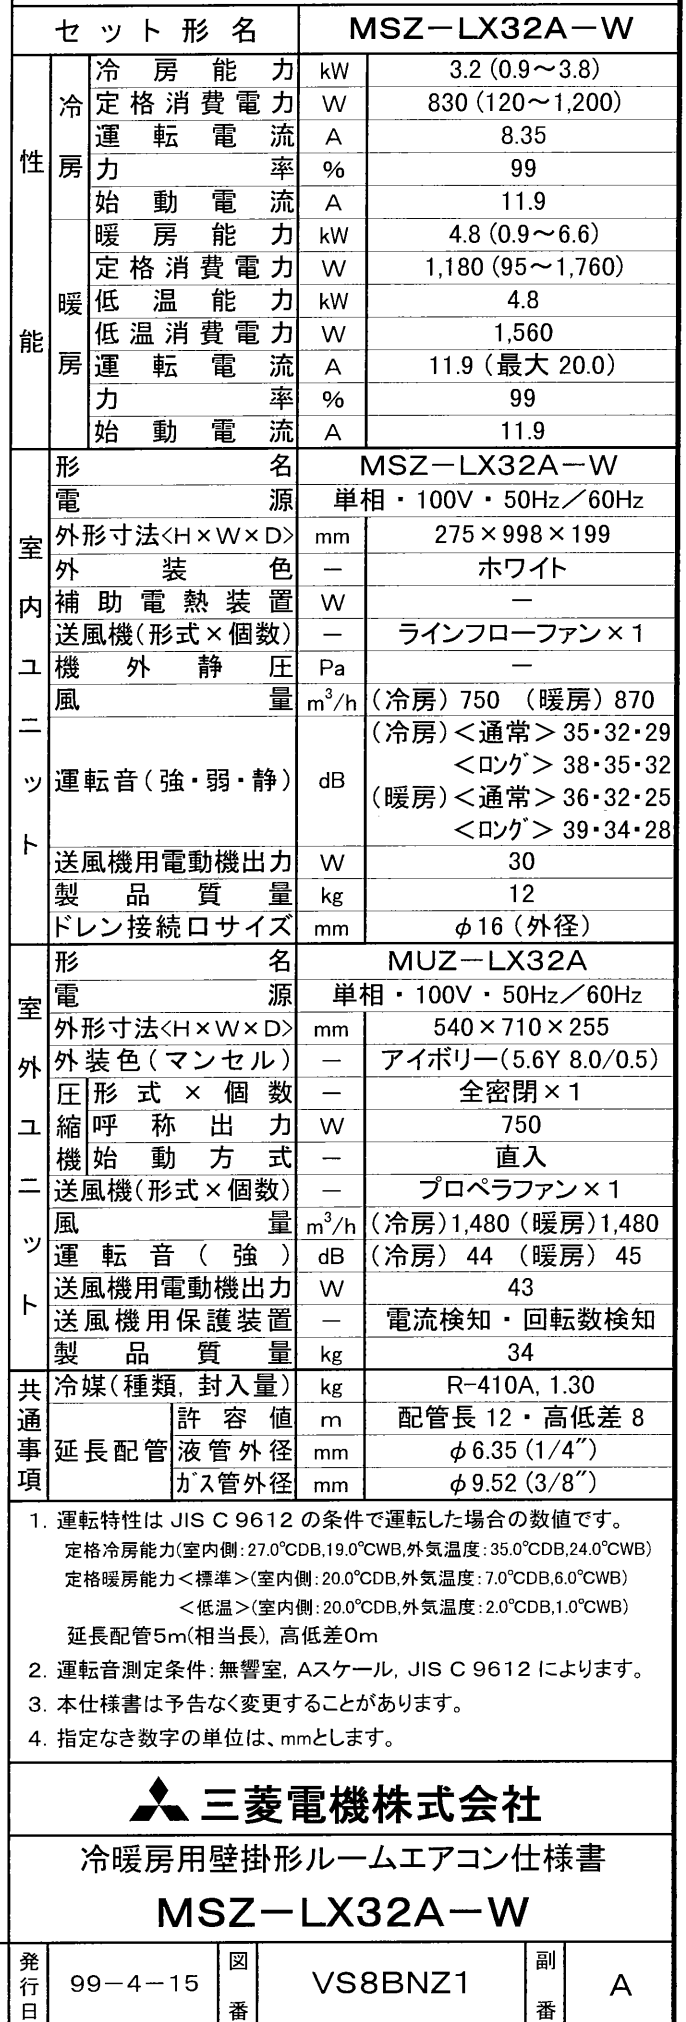 セット形名 MSZ－LX32A－W
性能 冷房 冷房能力 kW 3.2 (0.9～3.8)
定格消費電力 W 830 (120～1,200)
運転電流 A 8.35
力率 % 99
始動電流 A 11.9
暖房 暖房能力 kW 4.8 (0.9～6.6)
定格消費電力 W 1,180 (95～1,760)
低温能力 kW 4.8
低温消費電力 W 1,560
運転電流 A 11.9 (最大 20.0)
力率 % 99
始動電流 A 11.9
室内ユニット 形名 MSZ－LX32A－W
電源 単相・100V・50Hz／60Hz
外形寸法<H×W×D> mm 275×998×199
外装色 － ホワイト
補助電熱装置 W －
送風機(形式×個数) － ラインフローファン×1
機外静圧 Pa －
風量 m³/h (冷房) 750 (暖房) 870
運転音(強・弱・静) dB (冷房)＜通常＞35・32・29
＜ﾛﾝｸﾞ＞38・35・32
(暖房)＜通常＞36・32・25
＜ﾛﾝｸﾞ＞39・34・28
送風機用電動機出力 W 30
製品質量 kg 12
ドレン接続口サイズ mm φ16 (外径)
室外ユニット 形名 MUZ－LX32A
電源 単相・100V・50Hz／60Hz
外形寸法<H×W×D> mm 540×710×255
外装色(マンセル) － アイボリー(5.6Y 8.0/0.5)
圧縮機 形式×個数 － 全密閉×1
呼称出力 W 750
始動方式 － 直入
送風機(形式×個数) － プロペラファン×1
風量 m³/h (冷房)1,480 (暖房)1,480
運転音(強) dB (冷房) 44 (暖房) 45
送風機用電動機出力 W 43
送風機用保護装置 － 電流検知・回転数検知
製品質量 kg 34
共通事項 冷媒(種類, 封入量) kg R-410A, 1.30
延長配管 許容値 m 配管長 12・高低差 8
液管外径 mm φ6.35 (1/4″)
ｶﾞｽ管外径 mm φ9.52 (3/8″)
1. 運転特性は JIS C 9612 の条件で運転した場合の数値です。
定格冷房能力(室内側:27.0℃DB,19.0℃WB,外気温度:35.0℃DB,24.0℃WB)
定格暖房能力＜標準＞(室内側:20.0℃DB,外気温度:7.0℃DB,6.0℃WB)
＜低温＞(室内側:20.0℃DB,外気温度:2.0℃DB,1.0℃WB)
延長配管5m(相当長), 高低差0m
2. 運転音測定条件:無響室, Aスケール, JIS C 9612 によります。
3. 本仕様書は予告なく変更することがあります。
4. 指定なき数字の単位は、mmとします。
三菱電機株式会社
冷暖房用壁掛形ルームエアコン仕様書
MSZ－LX32A－W
発行日 99－4－15 図番 VS8BNZ1 副番 A